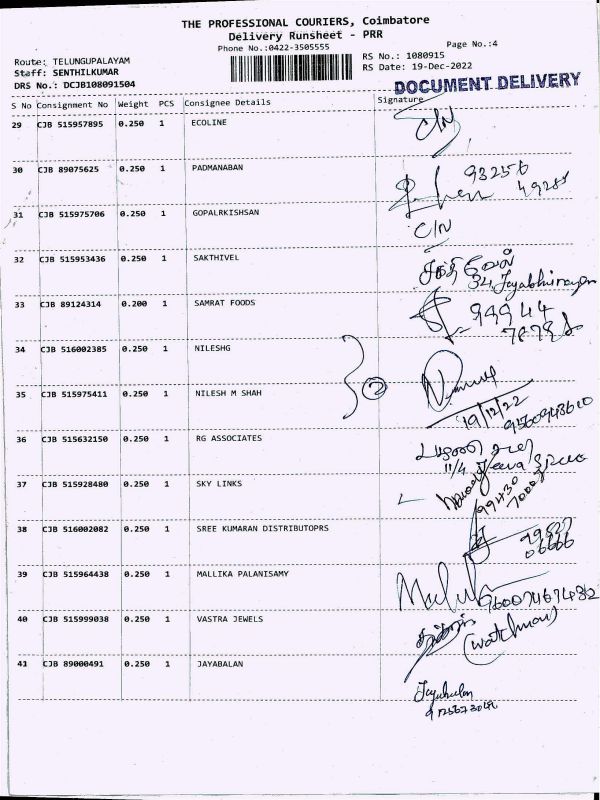 THE PROFESSIONAL COURIERS, Coimbatore
Delivery Runsheet - PRR
Phone No.:0422-3505555
Page No.:4
Route: TELUNGUPALAYAM
RS No.: 1080915
Staff: SENTHILKUMAR
RS Date: 19-Dec-2022
DRS No.: DCJB108091504
DOCUMENT DELIVERY
S No Consignment No Weight PCS Consignee Details Signature
29 CJB 515957895 0.250 1 ECOLINE C/N
30 CJB 89075625 0.250 1 PADMANABAN 93256
31 CJB 515975706 0.250 1 GOPALRKISHSAN C/N
32 CJB 515953436 0.250 1 SAKTHIVEL சக்திவேல்
34
33 CJB 89124314 0.200 1 SAMRAT FOODS 99944
34 CJB 516002385 0.250 1 NILESHG
2
35 CJB 515975411 0.250 1 NILESH M SHAH
19/12/22
36 CJB 515632150 0.250 1 RG ASSOCIATES
11/4 Jeeva
37 CJB 515928480 0.250 1 SKY LINKS
99430
38 CJB 516002082 0.250 1 SREE KUMARAN DISTRIBUTOPRS
06666
39 CJB 515964438 0.250 1 MALLIKA PALANISAMY
40 CJB 515999038 0.250 1 VASTRA JEWELS
(watchman)
41 CJB 89000491 0.250 1 JAYABALAN
Jayabalan